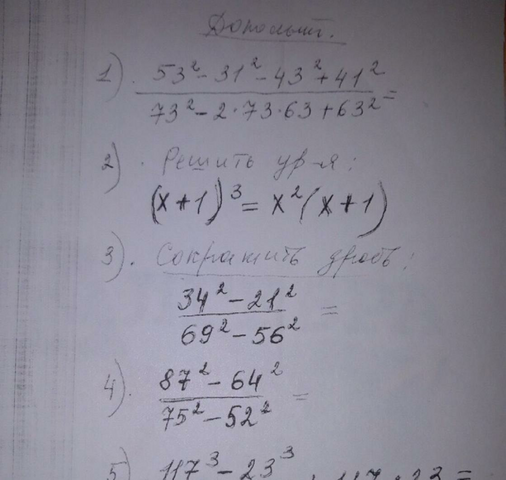 Дополнит.
1). 53² - 31² - 43² + 41²
73² - 2·73·63 + 63² =
2). Решить ур-я:
(x+1)³ = x²(x+1)
3). Сократить дробь:
34² - 21²
69² - 56² =
4). 87² - 64²
75² - 52² =
5) 117³ - 23³